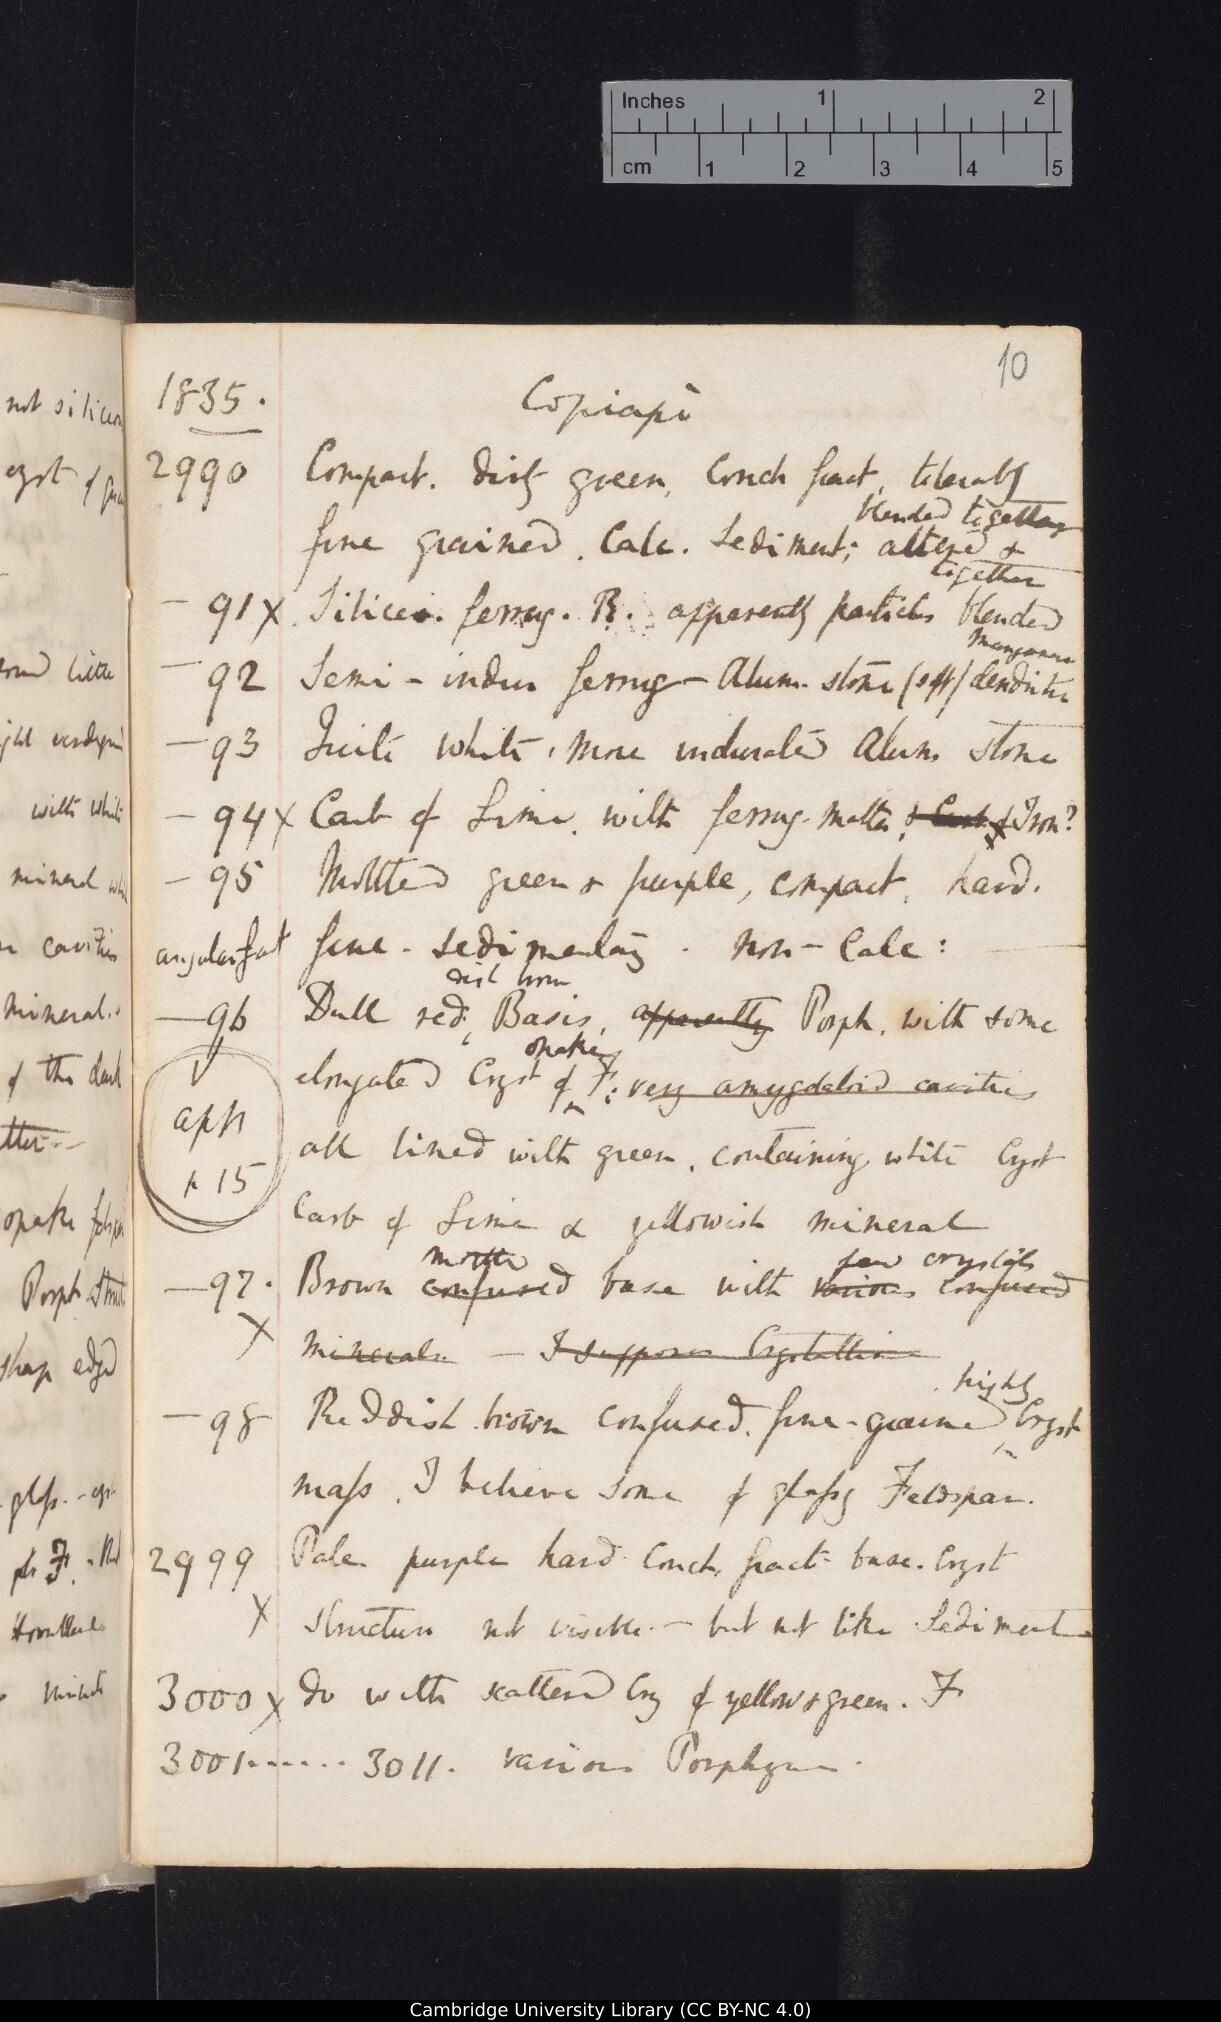 Inches 1 2
cm 1 2 3 4 5
10
1835. Copiapò
2990 Compact. dirty green, Conch fract, tolerably
blended together
fine grained. Calc. Sediment; altered &
together
— 91 X Silicei. ferrug. R. apparently particles blended
Manganese
— 92 Semi-indur ferrug— Alum. stone (soft) dendritic
— 93 Quite white, more indurated Alum stone
— 94 X Carb of Lime. with ferrug. matter, & Carb of Iron?
— 95 Mottled green & purple, compact, hard.
angular frat fine - sedimentary. non-Calc:
dirt brow
— 96 Dull red, Basis, apparently Porph. with some
opake
elongated Cryst of F: very amygdaloid cavities
V
apn
p 15
all lined with green, containing white Cryst
Carb of Lime & yellowish mineral
mottled few crystals
— 97. Brown confused base with various confused
X minerals — I suppose Crystalline
highly
— 98 Reddish brown confused. fine-grained Cryst
mass. I believe some of glassy Feldspar.
2999 Pale purple hard Conch, fract base. Cryst
X structure not visible — but not like Sediment
3000 X do with scattered Cry of yellow & green. F
3001...... 3011. various Porphyries.
not silicious
cryst of
little
with white
mineral
cavities
mineral.
of the dark
opake
Porph
sharp edged
Cambridge University Library (CC BY-NC 4.0)